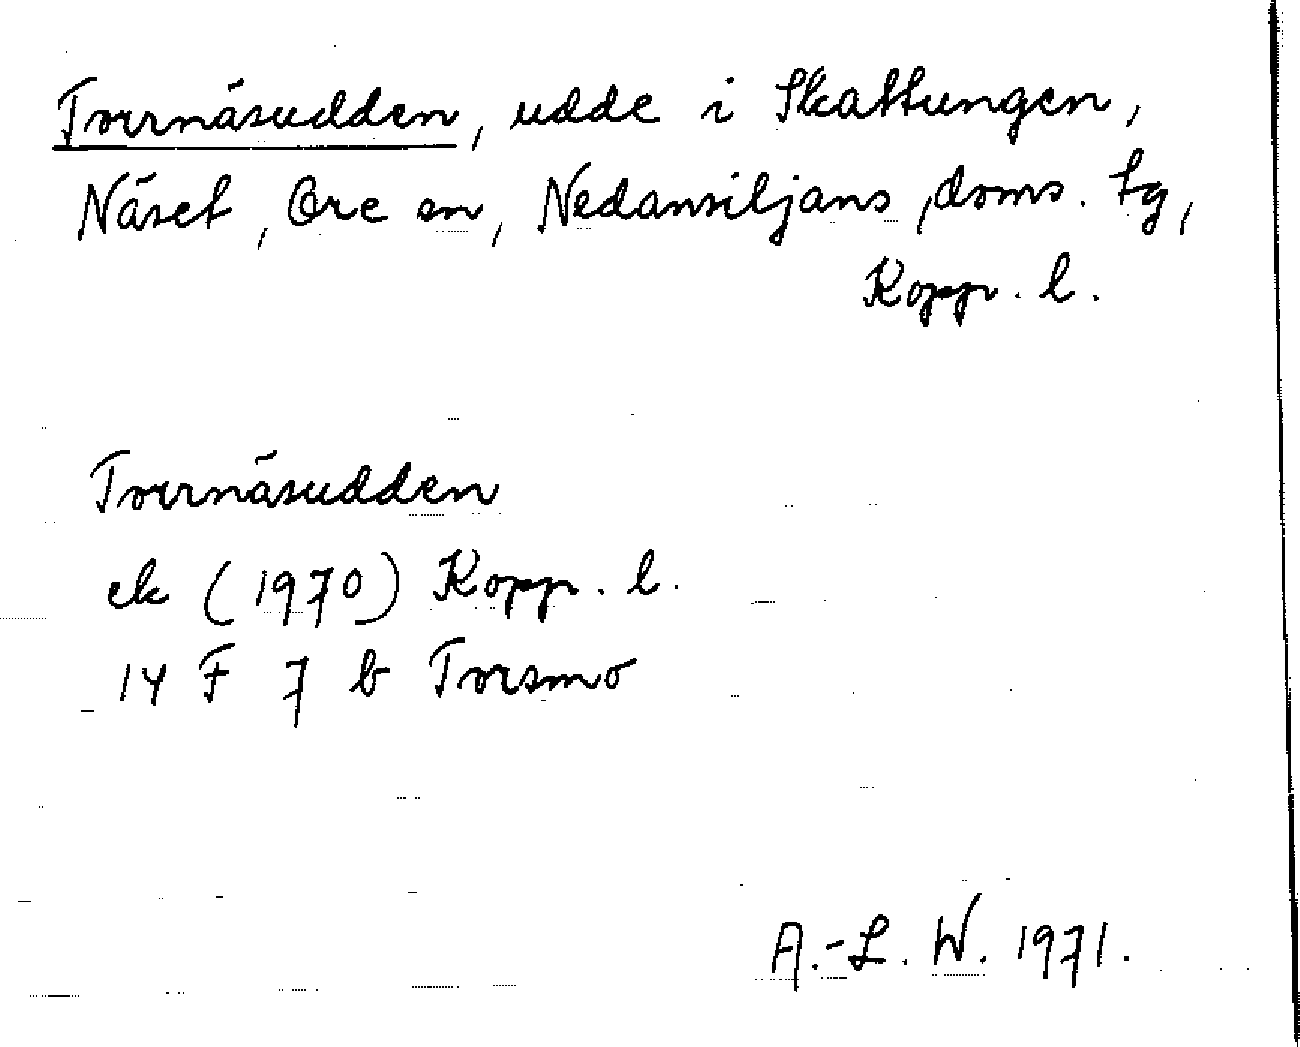 Torrnäsudden, udde i Skattungen,
Näset, Ore sn, Nedansiljans doms. tg,
Kopp. l.
Torrnäsudden
ek (1970) Kopp. l.
14 F 7 b Torsmo
A.-L. W. 1971.